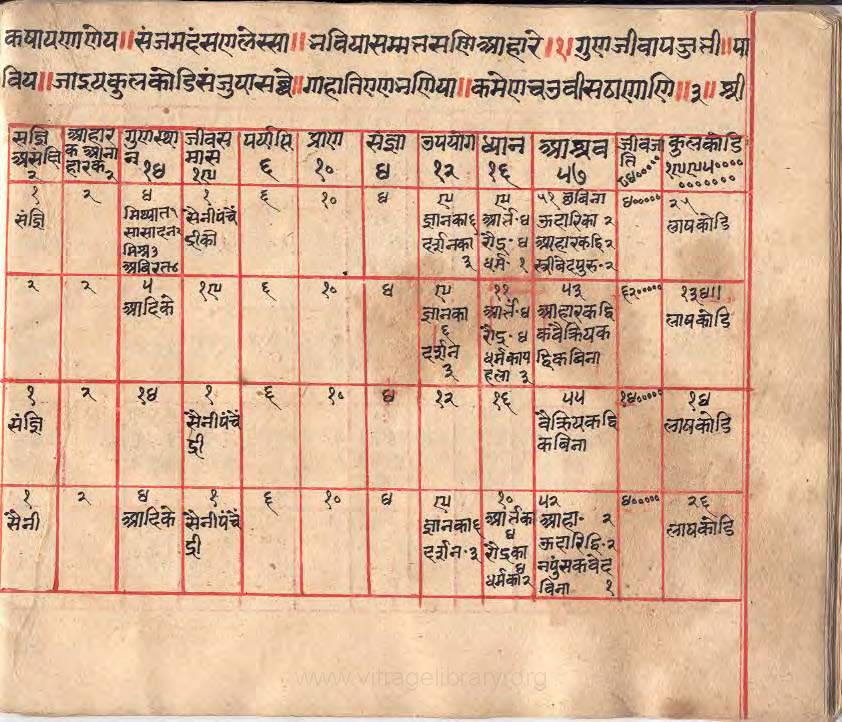 कषायणाणेय॥संजमदंसणलेस्सा॥नवियासम्मत्तसणिआहारे॥१॥गुणजीवापजुत्ती॥पा
विय॥जाइयकुलकोडिसंजुयासव्वे॥गाहातिएणनणिया॥कमेणचउवीसठाणाणि॥३॥श्री
सन्नि असन्नि २ आहारक आनाहारक २ गुणस्थान १४ जीवसमास १९ पर्याप्ति ६ प्राण १० संज्ञा ४ उपयोग १२ ध्यान १६ आश्रव ५७ जीवजाति ८४००००० कुलकोडि १९९५०००० ०००००००
१ संज्ञि २ ४ मिथ्यात१ सासादन२ मिश्र३ अविरत४ १ सैनीपंचेंद्रीको ६ १० ४ ९ ज्ञानका६ दर्शनका ३ ९ आर्त-४ रौद्र-४ धर्म-१ ५१ छबिना ऊदारिका २ आहारकद्वि २ स्त्रीवेदपुरु-२ ४००००० २५ लाषकोडि
२ २ ५ आदिके १९ ६ १० ४ ९ ज्ञानका ६ दर्शन ३ ११ आर्त-४ रौद्र-४ धर्मकाप हला ३ ५३ आहारकद्वि कवैक्रियक द्विकबिना ६२००००० १३४॥ लाषकोडि
१ संज्ञि २ १४ १ सैनीपंचेंद्री ६ १० ४ १२ १६ ५५ वैक्रियकद्वि कबिना १४००००० १४ लाषकोडि
१ सैनी २ ४ आदिके १ सैनीपंचेंद्री ६ १० ४ ९ ज्ञानका६ दर्शन-३ १० आर्तका ४ रौद्रका ४ धर्मका२ ५२ आहा- २ ऊदारिद्वि-२ नपुंसकवेद बिना १ ४००००० २६ लाषकोडि
www.vitragelibrary.org